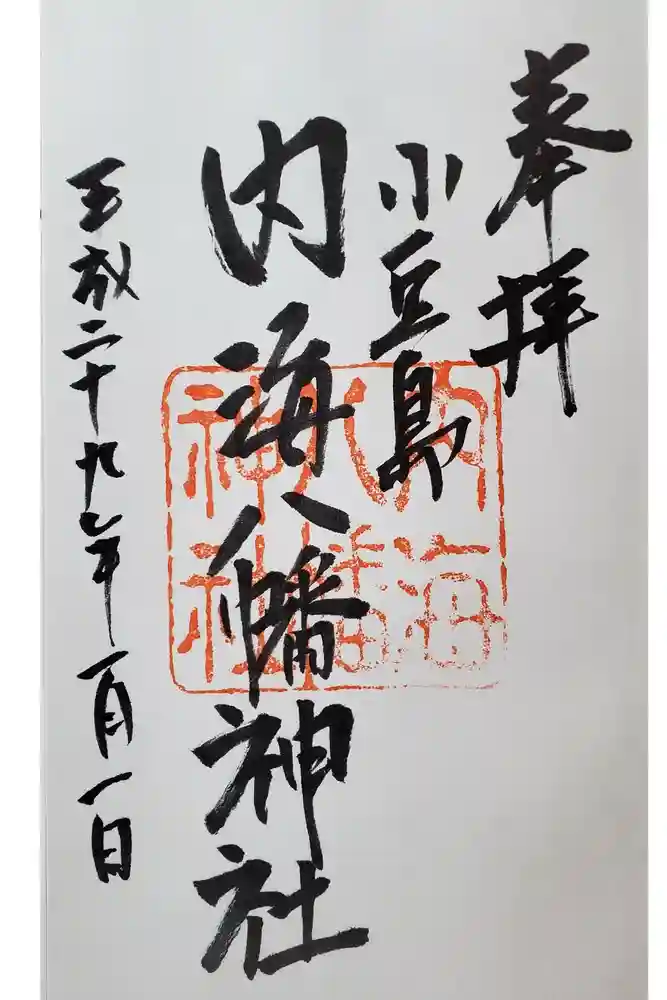 奉拝
小豆島
内海八幡神社
内海八幡神社
平成二十九年一月一日